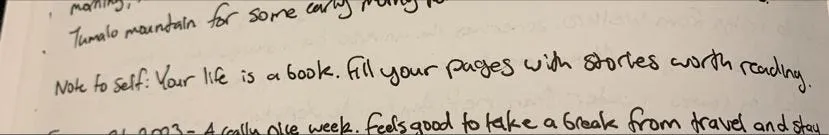 morning,
Tumalo mountain for some early
Note to self: Your life is a book. Fill your pages with stories worth reading.
2023 - A really nice week. Feels good to take a break from travel and stay